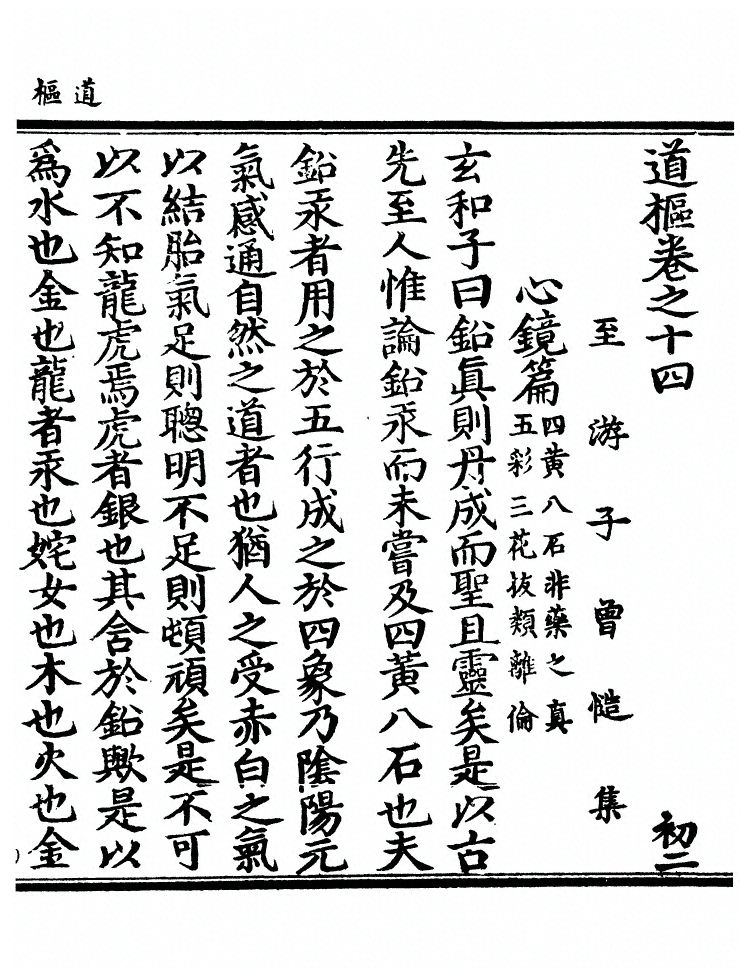 道樞
道樞卷之十四 初二
至游子曾慥集
心鏡篇
四黃八石非藥之真
五彩三花拔類離倫
玄和子曰鉛眞則丹成而聖且靈矣是以古
先至人惟論鉛汞而未嘗及四黃八石也夫
鉛汞者用之於五行成之於四象乃陰陽元
氣感通自然之道者也猶人之受赤白之氣
以結胎氣足則聰明不足則頓頑矣是不可
以不知龍虎焉虎者銀也其舍於鉛歟是以
爲水也金也龍者汞也姹女也木也火也金